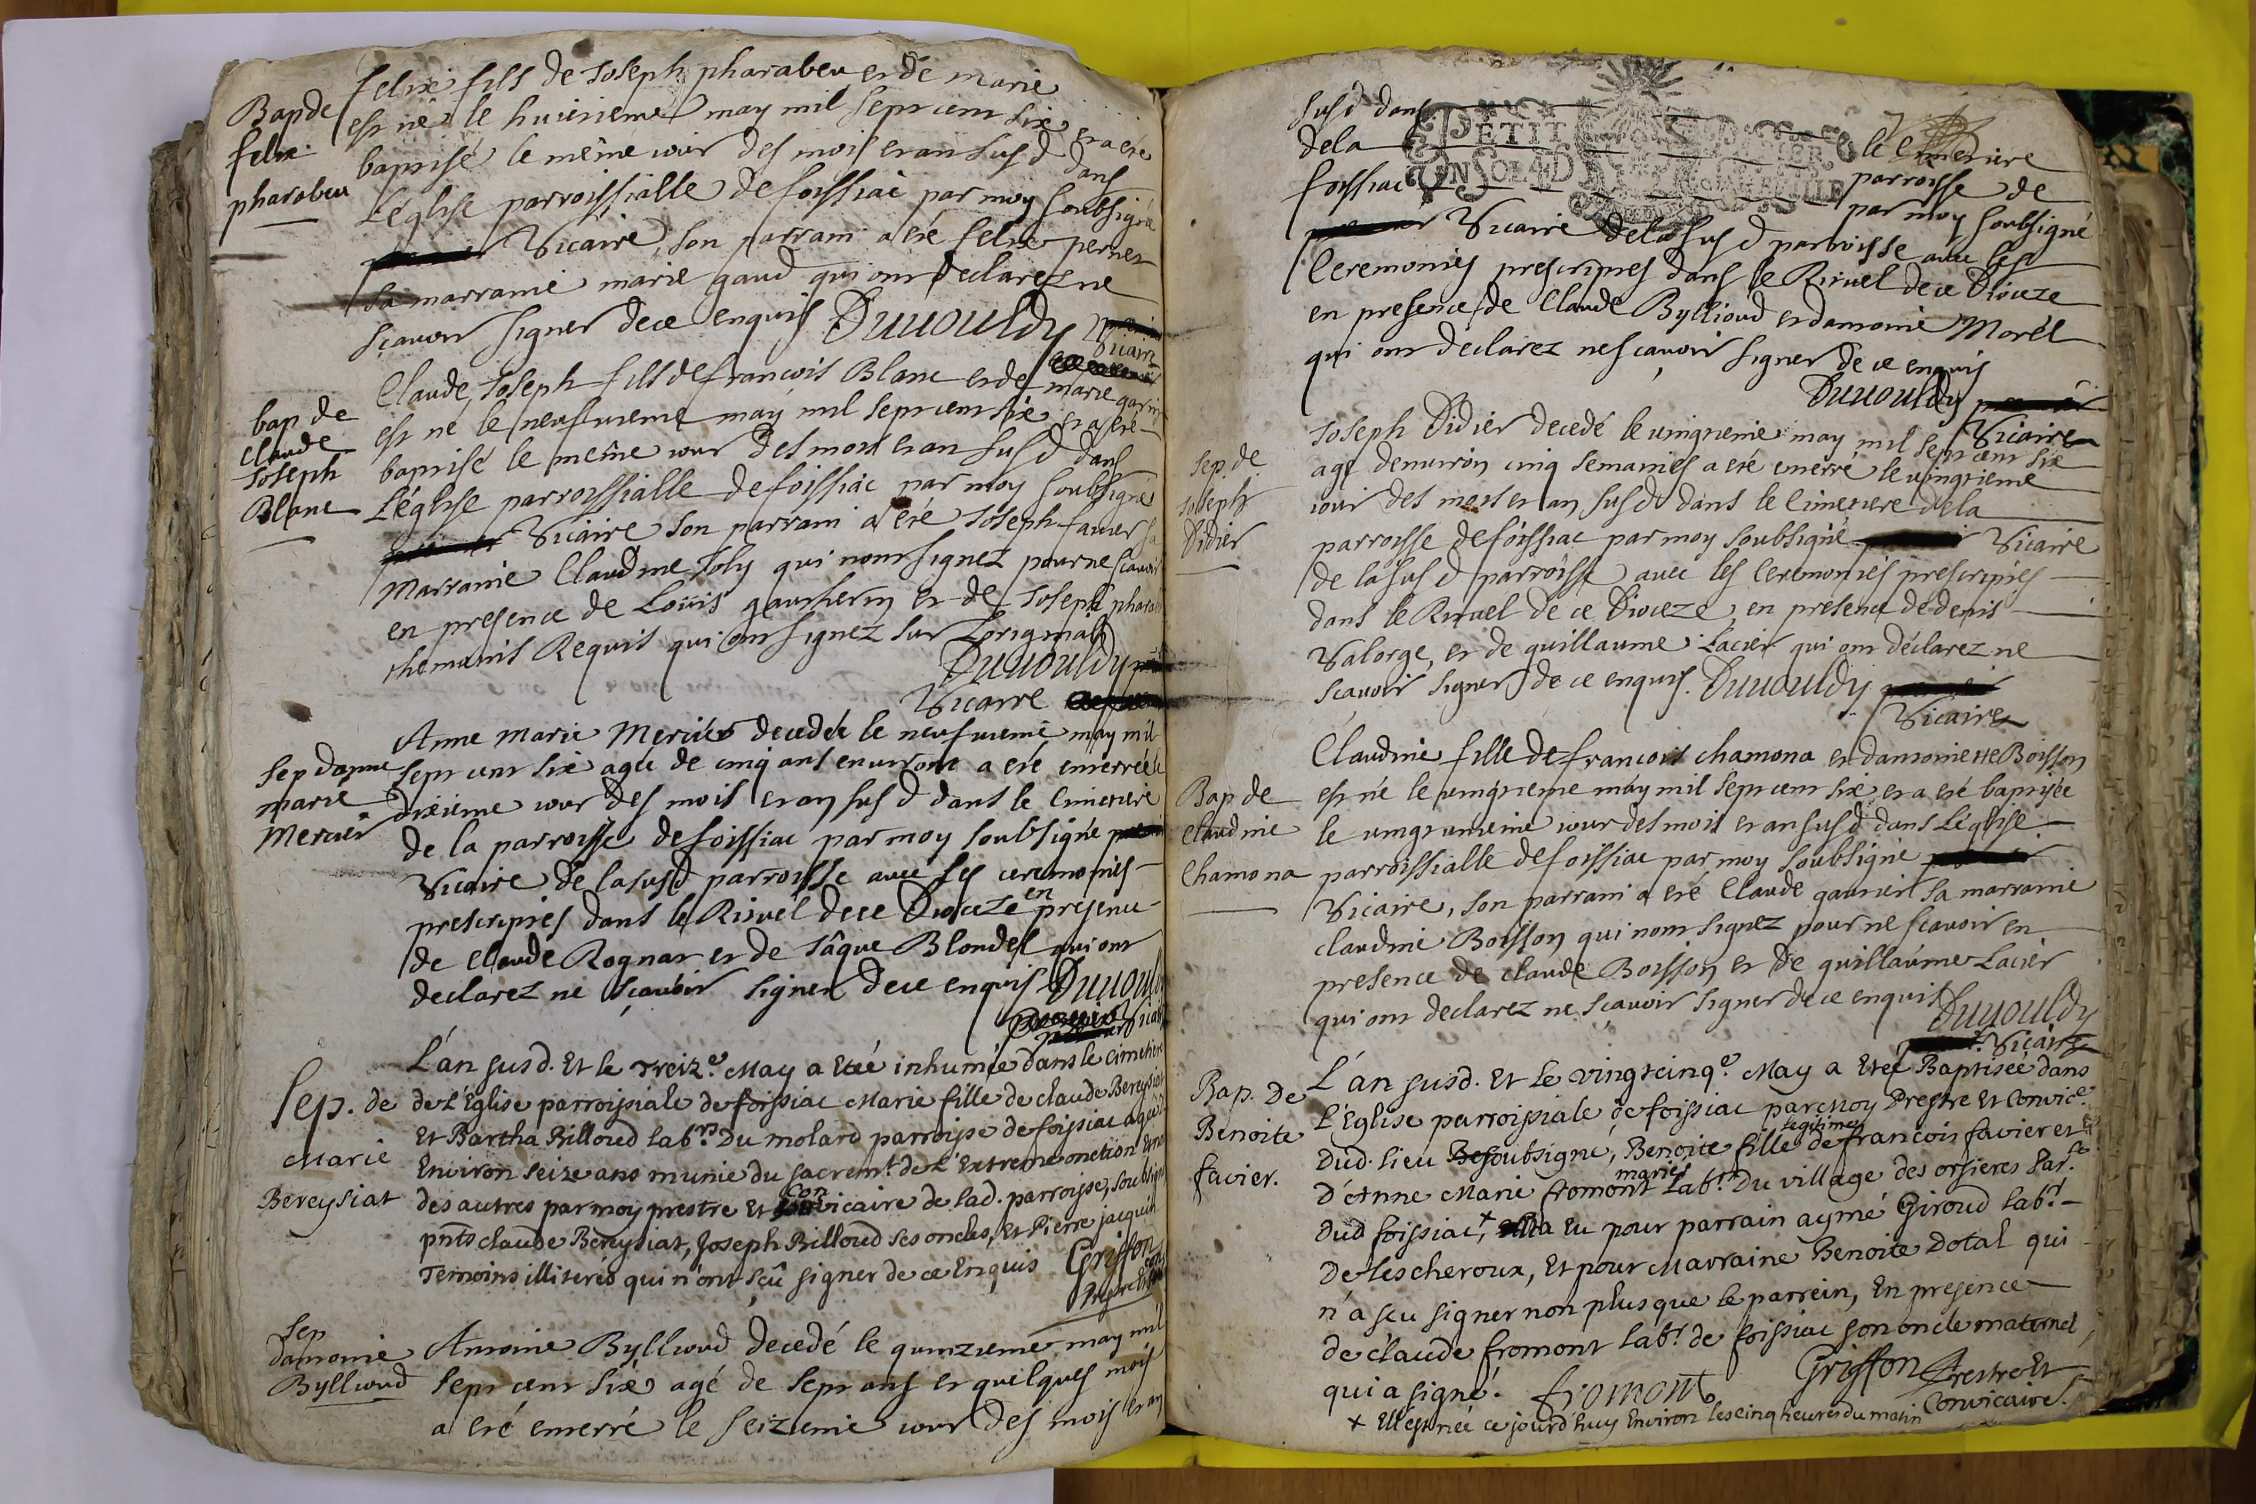 Bap de
felix
pharabeu
felix fils de Joseph pharabeu et de marie
est né le huictieme may mil sept cent six et a eté
baptisé le même jour des mois et an susd dans
L'église parroissialle de foissiac par moy soubsigné
Vicaire, son parrain a eté felix pernet
sa marraine marie gaud qui ont declarez ne
sçavoir signer de ce enquis Duuouldy
Vicaire
bap de
claude
Joseph
Blanc
Claude Joseph fils de francois Blanc et de marie
est né le neufvieme may mil sept cent six et a eté
baptisé le même jour des mois et an susd dans
L'église parroissialle de foissiac par moy soubsigné
Vicaire son parrain a eté Joseph favier sa
marraine Claudine Joly qui n'ont signez pour ne scavoir
en presence de Louis gautherin et de Joseph
themoins Requis qui ont signez sur L'original
Duuouldy
Vicaire
Sep d'anne
marie
Mercier
Anne Marie Mercier decedée le neufvieme may mil
sept cent six agée de cinq ans environt a eté enterrée le
dixieme jour des mois et an susd dans le cimetiere
de la parroisse de foissiac par moy soubsigné
Vicaire de la susd parroisse avec les ceremonies
prescriptes dans le Rituel de ce Dioceze en presence
de Claude Rognat et de Jâque Blondel qui ont
declarez ne sçavoir signer de ce enquis Duuouldy
Vicaire
Sep. de
Marie
Bereysiat
L'an susd. Et le treiz.e May a Eté inhumée dans le cimetiere
de L'Eglise parroissiale de foissiac Marie fille de claude Bereysiat
Et Bartha Billoud lab.rs Du molard parroisse de foissiac agée d'
Environ seize ans munie du sacrem.t de L'Extreme onction Et non
des autres par moy prestre Et con vicaire de lad. parroisse, soubsigné
pnts claude Bereysiat, Joseph Billoud ses oncles, Et Pierre jacquin
Temoins illiterés qui n'ont sçû signer de ce Enquis Griffon
Prestre
Sep
d'antoine
Byllioud
Antoine Byllioud decedé le quinzieme may mil
sept cent six agé de sept ans et quelques mois
a eté enterré le seizieme jour des mois et an
susd dans le cimetiere
PETIT PAPIER
de la parroisse de
UN SOL
foissiac par moy soubsigné
Vicaire de la susd parroisse avec les
Ceremonies prescriptes dans le Rituel de ce Dioceze
en presence de Claude Byllioud et d'antoine Morel
qui ont declarez ne scavoir signer de ce enquis
Duuouldy
Vicaire
Sep. de
Joseph
Didier
Joseph Didier decedé le vingtieme may mil sept cent six
agé d'environ cinq semaines a eté enterré le vingtieme
jour des mois et an susd dans le Cimetiere de la
parroisse de foissiac par moy soubsigné Vicaire
de la susd parroisse avec les Ceremonies prescriptes
dans le Rituel de ce Dioceze, en presence de denis
Valorge, et de guillaume Lacier qui ont déclarez ne
scavoir signer de ce enquis. Duuouldy
Vicaire
Bap de
Claudine
Chamona
Claudine fille de francois chamona et d'antoinette Boisson
est né le vingtieme may mil sept cent six et a eté baptisée
le vingtunieme jour des mois et an susd dans L'église
parroissialle de foissiac par moy soubsigné
Vicaire, son parrain a eté Claude gautier sa marraine
claudine Boisson qui n'ont signez pour ne scavoir en
presence de claude Boisson et de guillaume Lacier
qui ont declarez ne sçavoir signer de ce enquis Duuouldy
Vicaire
Bap. De
Benoite
favier.
L'an susd. Et Le vingtcinq.e May a Eté Baptisée dans
L'Eglise parroissiale de foissiac par Moy Prestre Et Convic.e
Dud. lieu soubsigné, Benoite fille legitime de francois favier et
D'Anne Marie fromont mariés Lab.rs Du village des orsieres Par.se
Dud foissiac,+ Elle a Eu pour parrain aymé Giroud lab.r
De lescheroux, Et pour Marraine Benoite Dotal qui
n'a sceu signer non plus que le parrein, En presence
de claude fromont lab.r de foissiac son oncle maternel,
qui a signé. fromont Griffon Prestre Et
Convicaire.
+ Elle est née ce jourd'huy Environ les cinq heures du matin